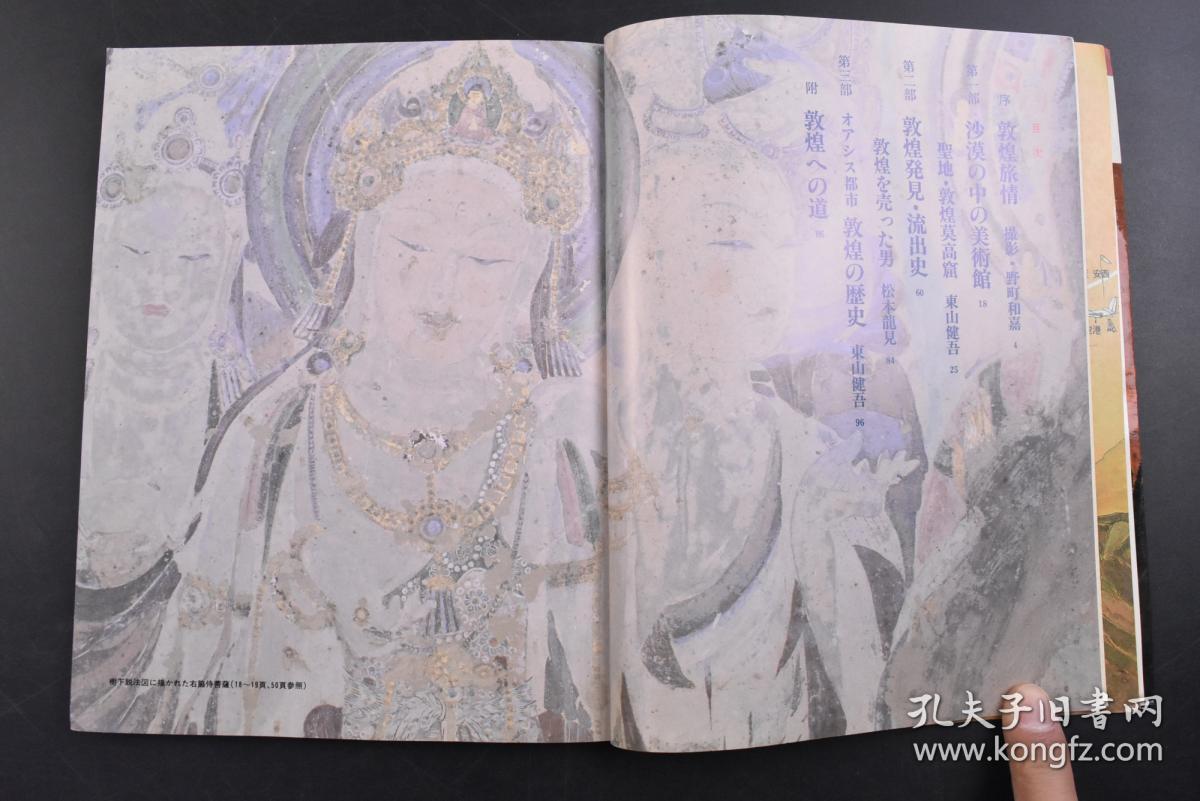 目次
序 敦煌旅情 撮影・野町和嘉 4
第一部 沙漠の中の美術館 18
聖地・敦煌莫高窟 東山健吾 25
第二部 敦煌発見・流出史 60
敦煌を売った男 松本龍見 84
第三部 オアシス都市 敦煌の歴史 東山健吾 96
附 敦煌への道
樹下説法図に描かれた右脇侍菩薩(18〜19頁、50頁参照)
孔夫子旧书网
www.kongfz.com